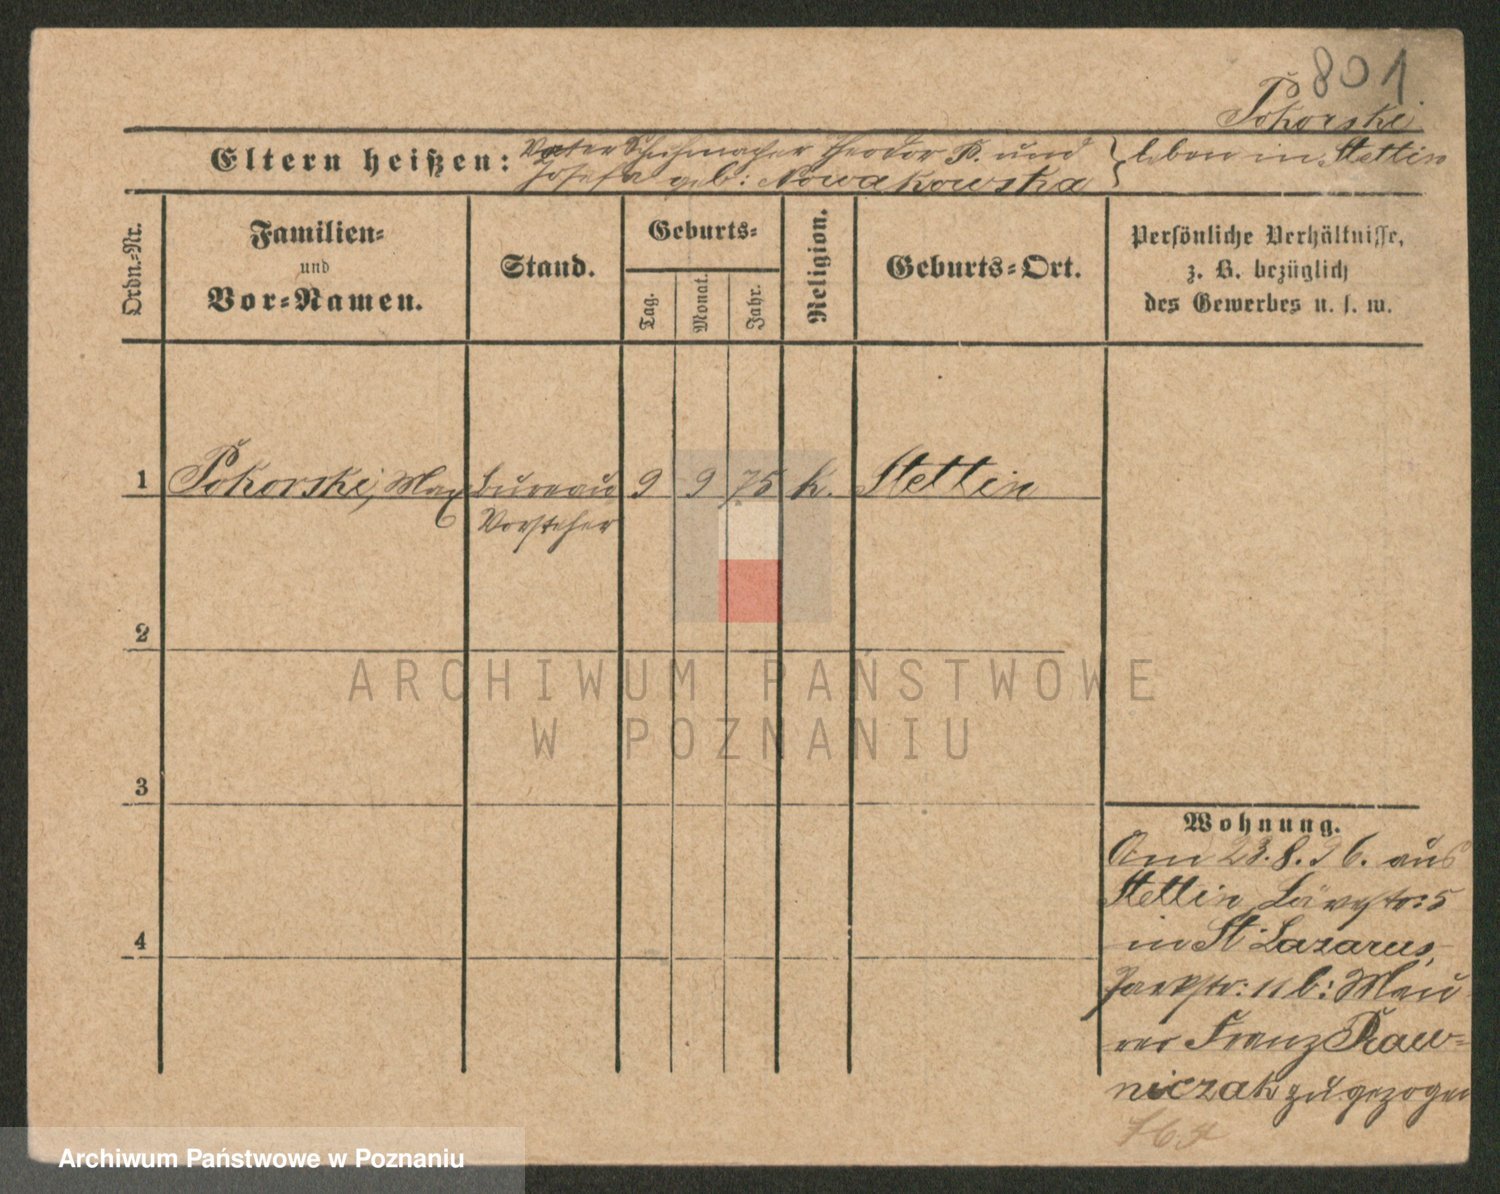 801
Pokorski
Eltern heißen: Vater Schuhmacher Theodor P. und } leben in Stettin
Josefa geb: Nowakowska
Ordn.-Nr.
Familien-
und
Vor-Namen.
Stand.
Geburts-
Tag.
Monat.
Jahr.
Religion.
Geburts-Ort.
Persönliche Verhältnisse,
z. B. bezüglich
des Gewerbes u. s. w.
1 Pokorski, Max Bureau 9 9 75 k. Stettin
Vorsteher
2
3
4
Wohnung.
Am 23.8.96. aus
Stettin 5
in St. Lazarus,
Parkstr: 11 b: Mau
rer Franz Raw-
niczak zugezogen
ARCHIWUM PAŃSTWOWE
W POZNANIU
Archiwum Państwowe w Poznaniu